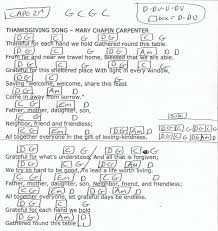 CAPO 2nd G C G C
D-DU-D-DU
THANKSGIVING SONG - MARY CHAPIN CARPENTER
DG C G
Thankful for each hand we hold Gathered round this table.
DG C DG Am D
From far and near we travel home, Blessed that we are able.
DG C G
Grateful for this sheltered place With light in every window,
DG C G
Saying "welcome, welcome, share this feast
DG Am D
Come in away from sorrow."
C Em D
Father, mother, daughter, son,
C Am D G
Neighbor, friend and friendless;
C Em D C G
All together everyone in the gift of loving-kindness.
DG C G
Grateful for what's understood And all that is forgiven;
DG C DG Am D
We try so hard to be good, To lead a life worth living.
C Em D C G
Father, mother, daughter, son, Neighbor, friend, and friendless;
C Em D Am D
All together everyone, let grateful days be endless.
DG C
Grateful for each hand we hold
DG Am D G
Gathered round this table.